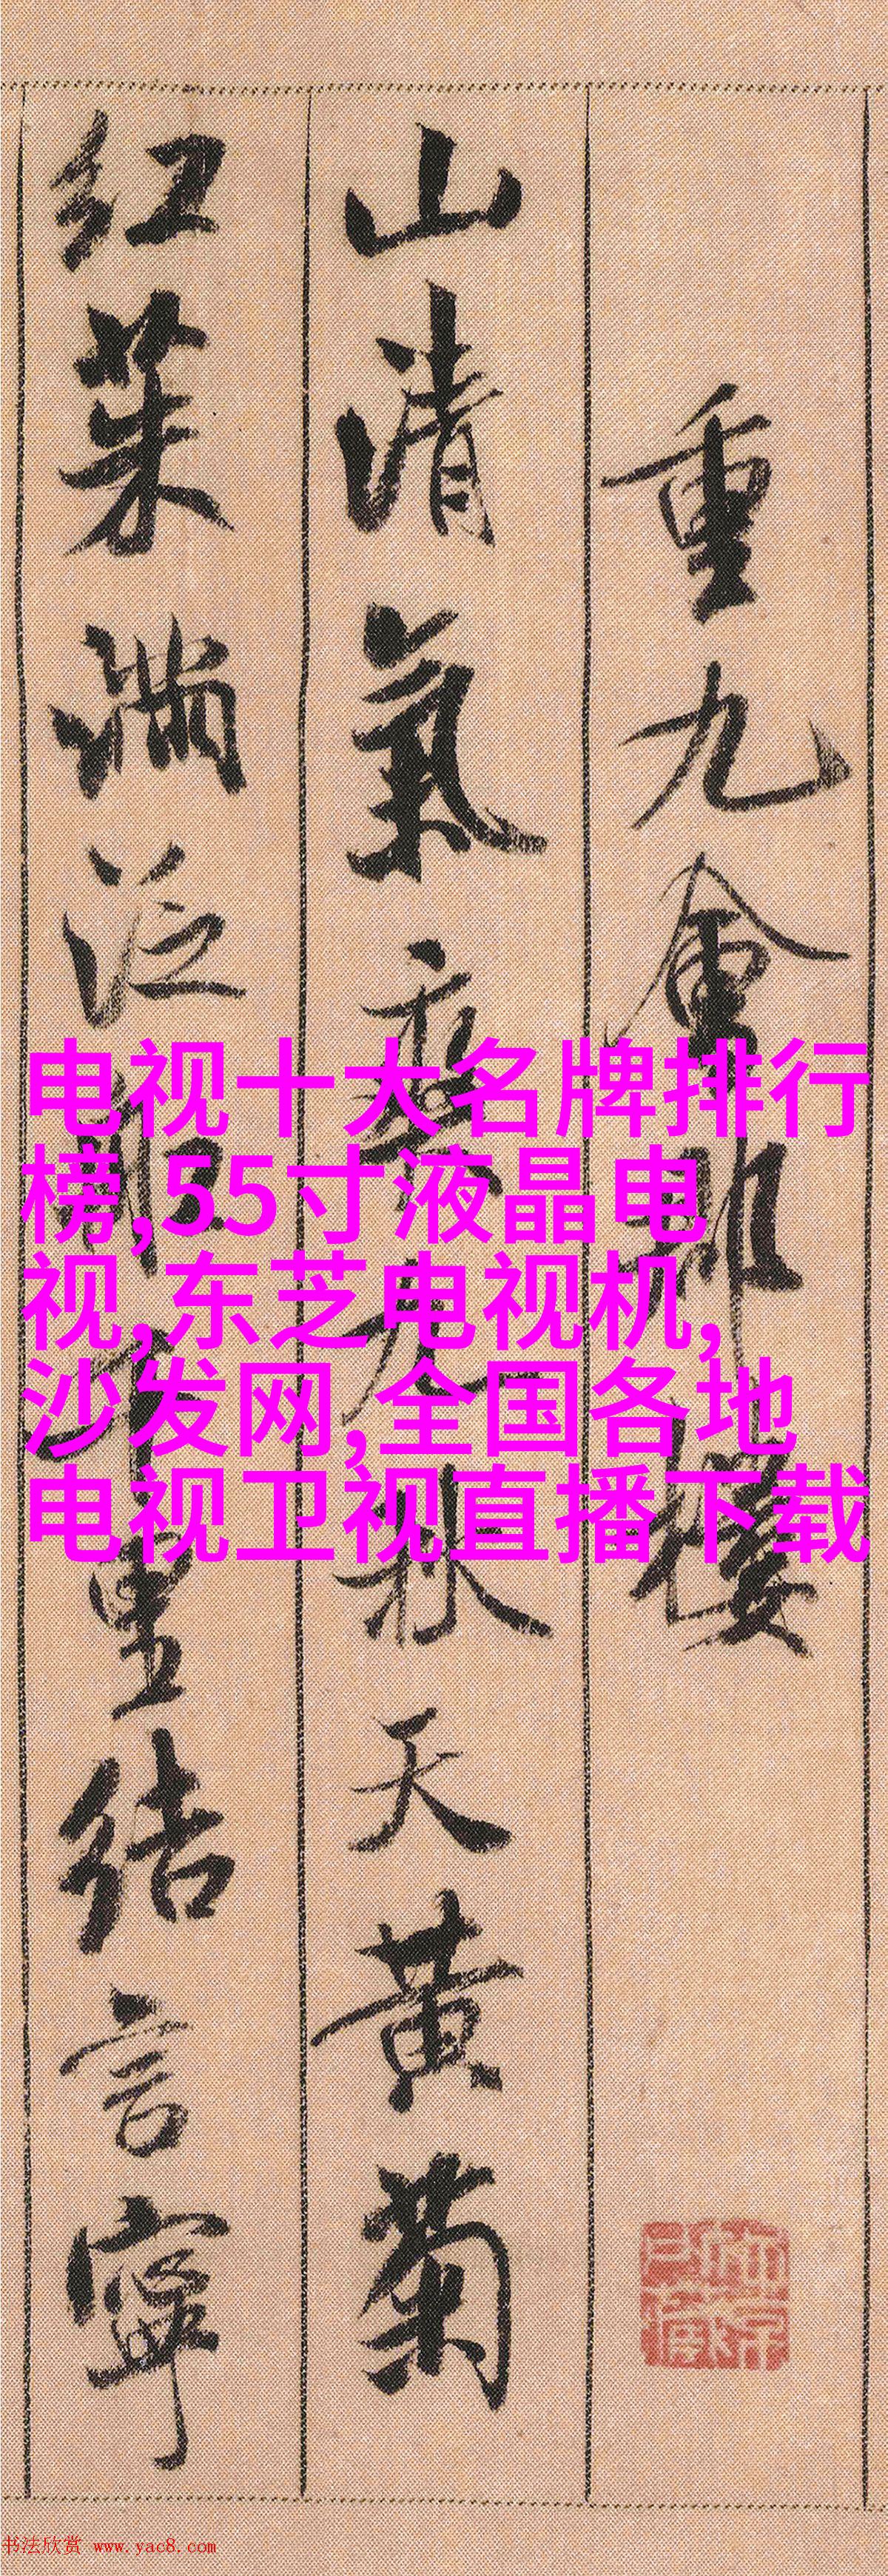 重九會郡樓
山清氣爽九秋天黃菊
紅茱滿泛船千里結言寧
电视十大名牌排行
榜,55寸液晶电
视,东芝电视机,
沙发网,全国各地
电视卫视直播下载
书法欣赏 www.yac8.com